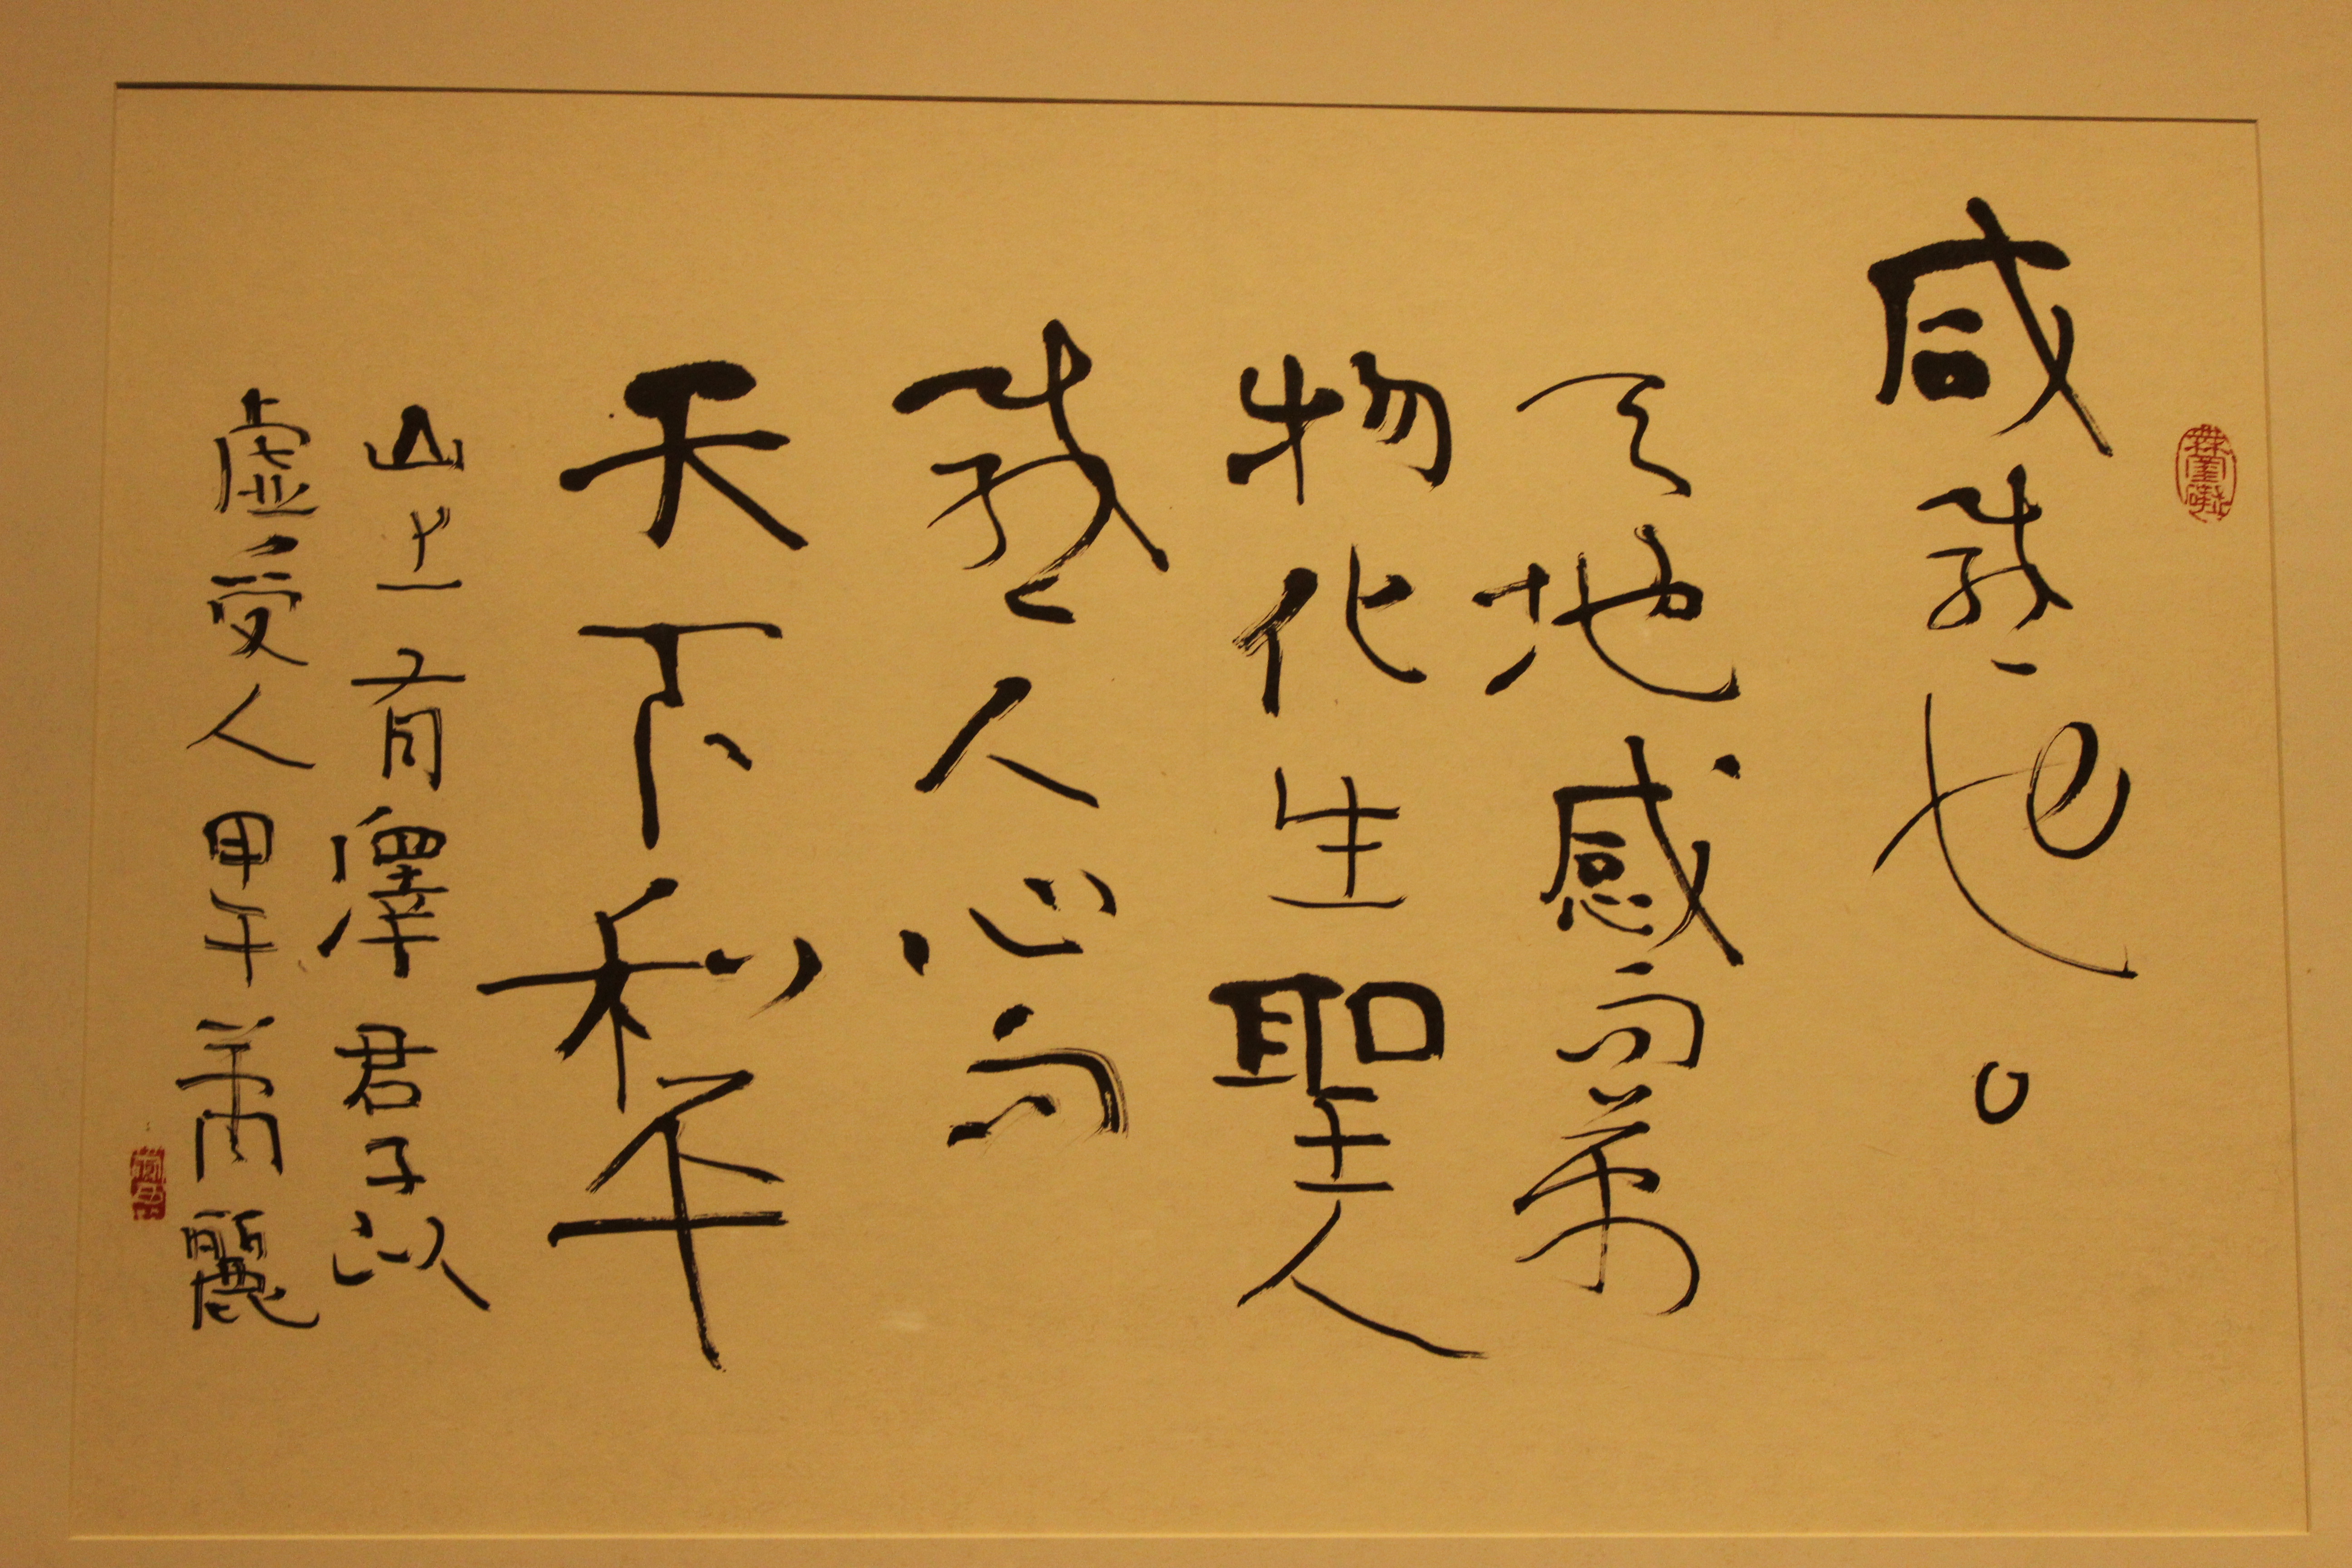 咸感也。
天地感而萬
物化生聖人
感人心而
天下和平
山上有澤君子以
虛受人甲午萧麗